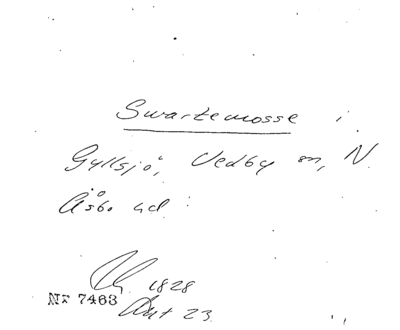 Swartemosse i
Gyllsjö, Vedby sn, N.
Åsbo hd :
1828
Nr 7463
Ant 23